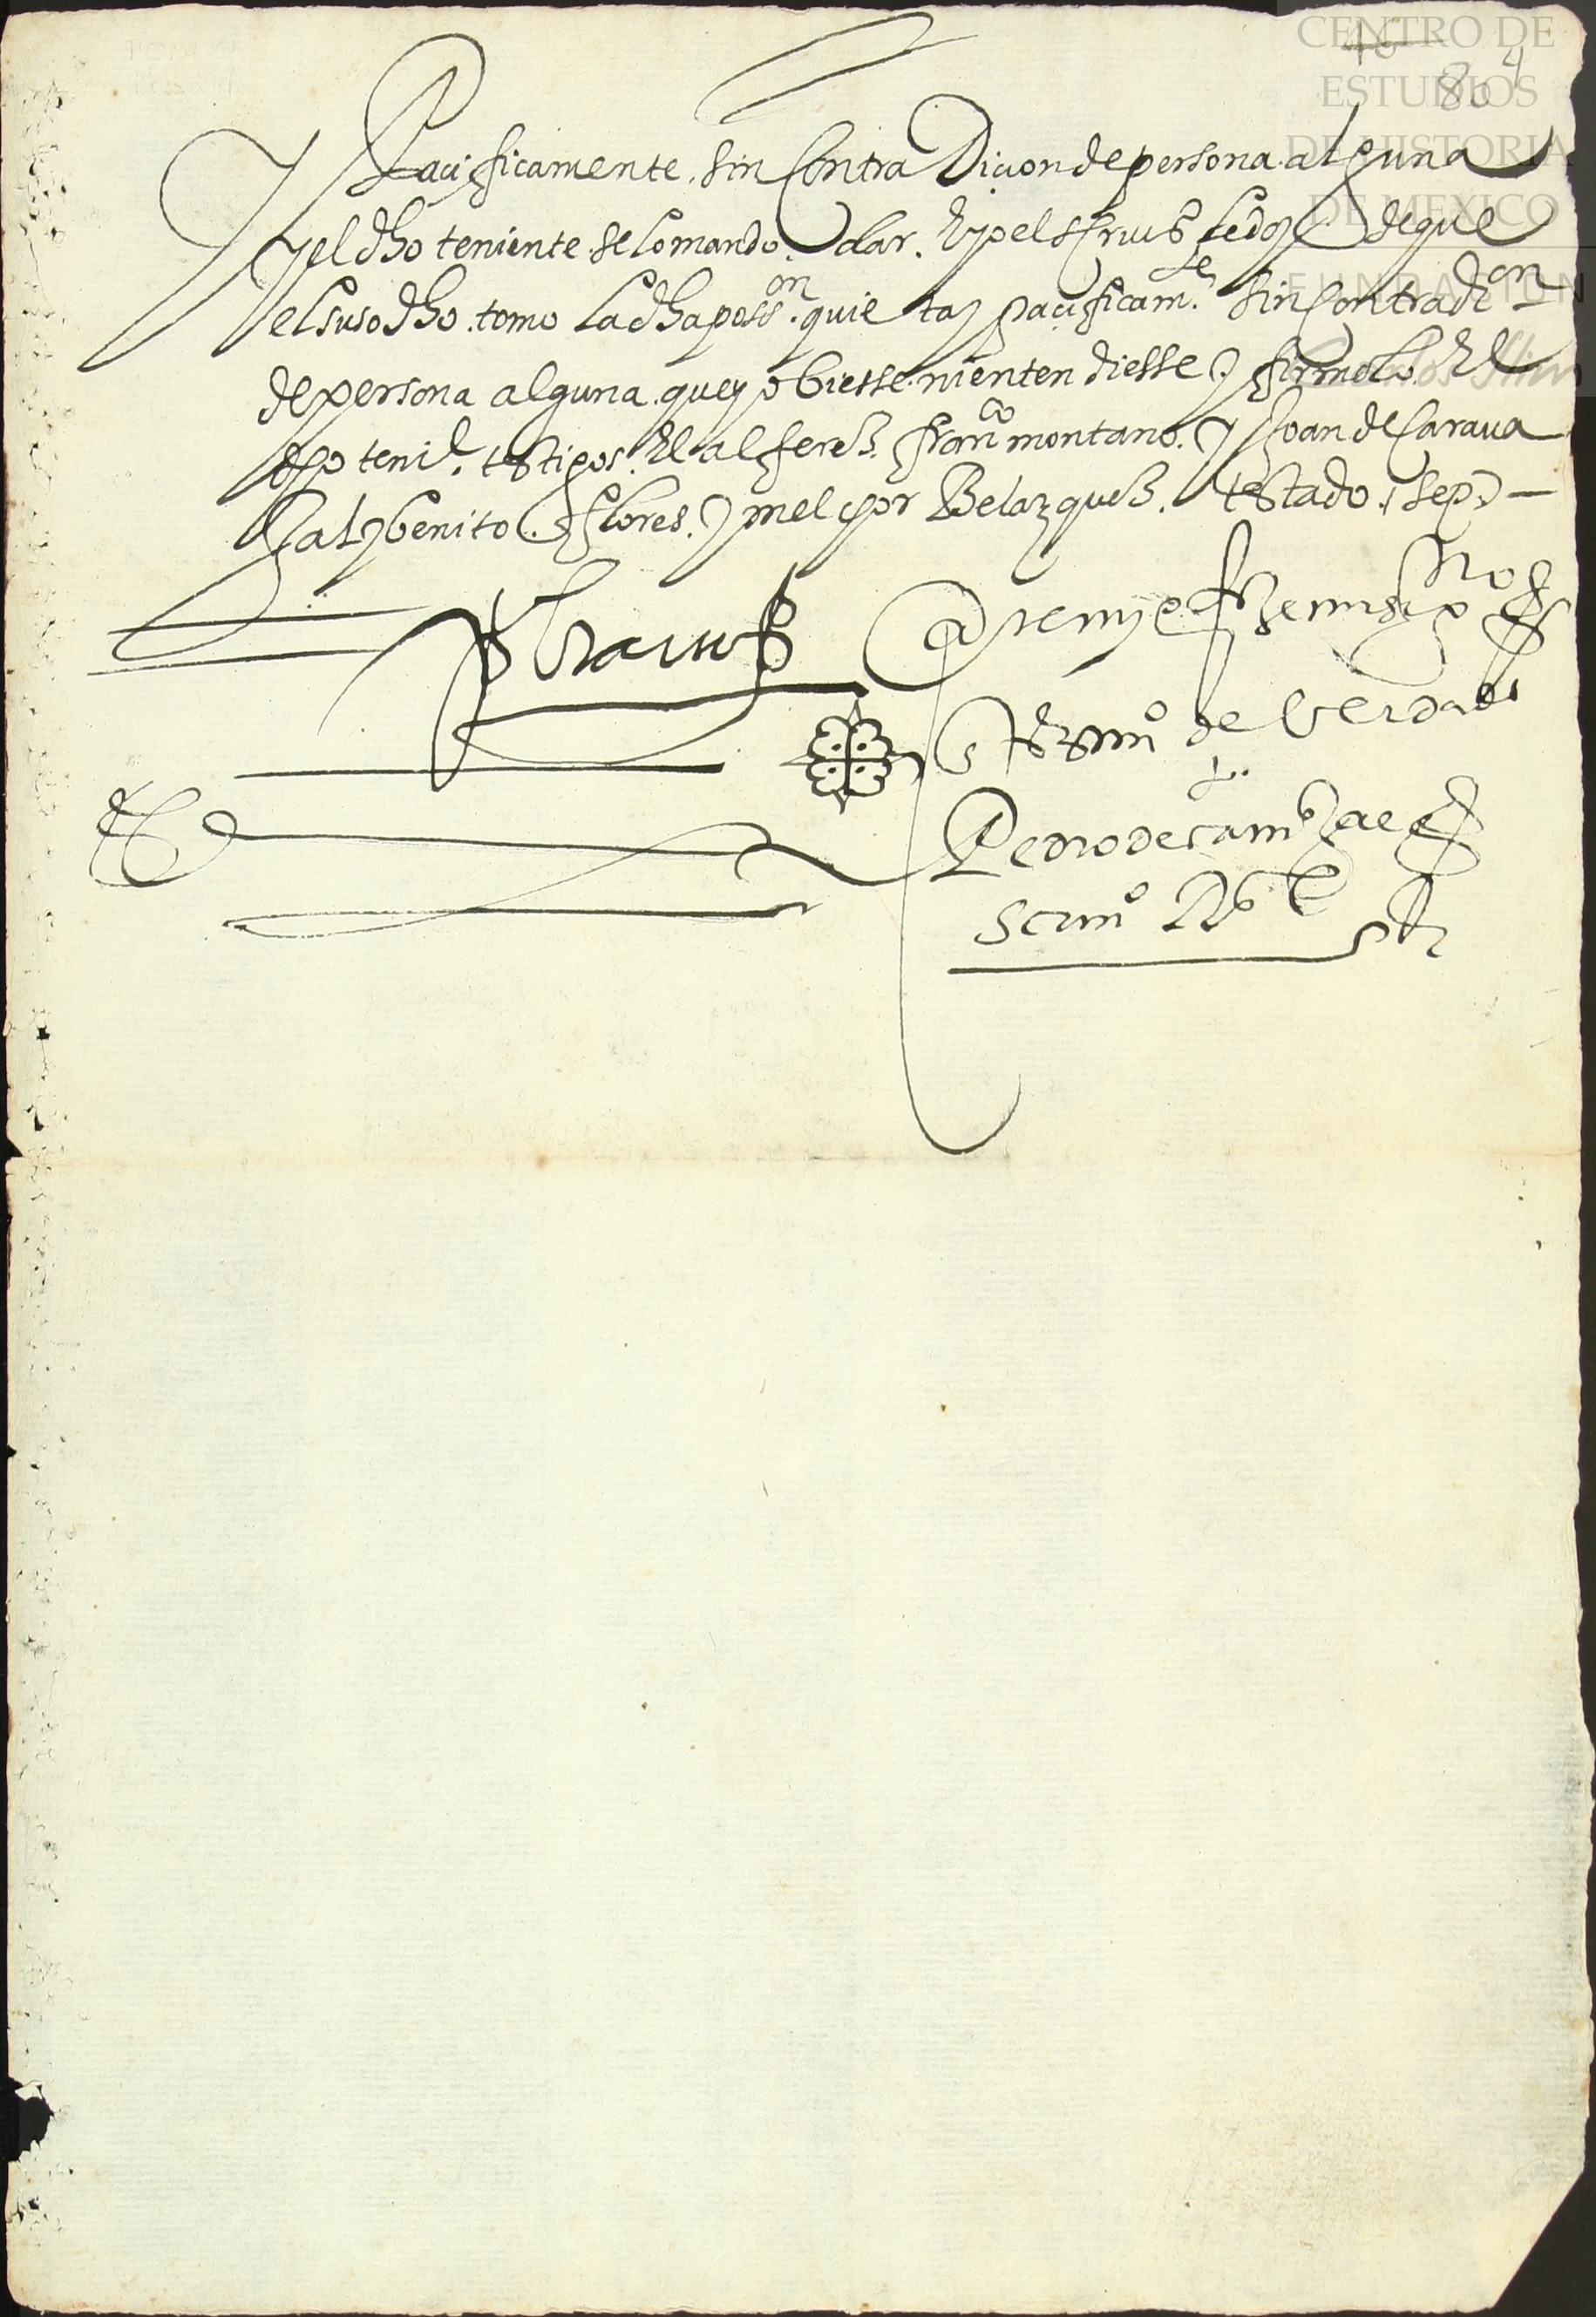 CENTRO DE
ESTUDIOS
DE HISTORIA
DE MEXICO
FUNDACIÓN
80
4
Pacificamente. sin Contra Dicion de persona alguna
y el dho teniente se lo mando. dar. E yo el scrivº le doy fe de que
el suso dho. tomo la dha poss.on quieta y pacificam.te sin contradi.on
de persona alguna. que yo biesse. ni entendiesse y firmolo. El
dho teni.e testigos. El alferes. fran.co montano. y Joan de Carava
y benito. flores. y melchor Belazques. testado.
de verdad
Pedro de
scriuº